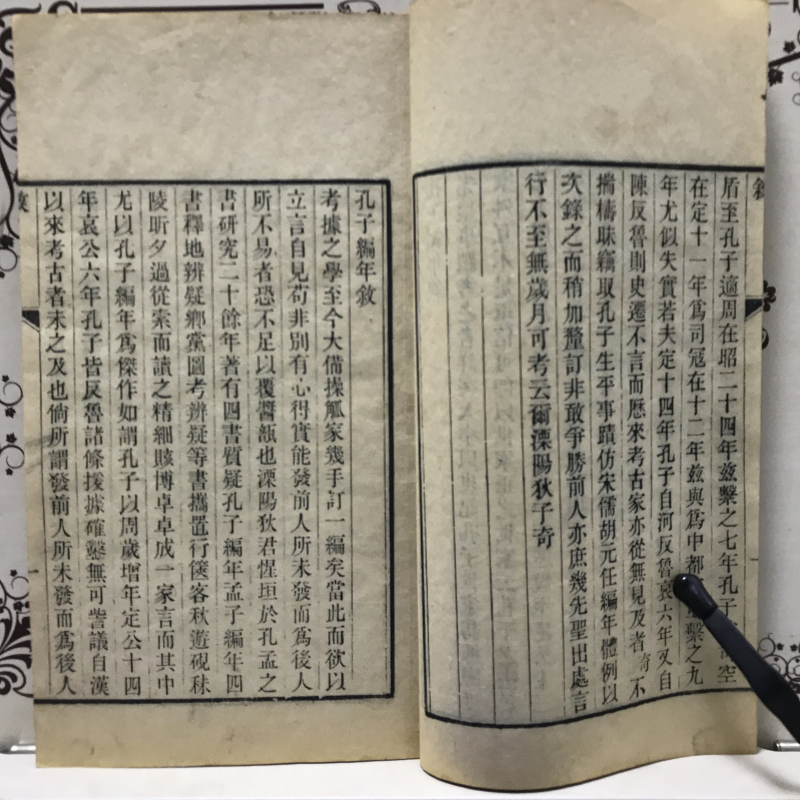 盾至孔子適周在昭二十四年玆繫之七年孔子空
在定十一年爲司冦在十二年玆與爲中都繫之九
年尤似失實若夫定十四年孔子自河反魯哀六年又自
陳反魯則史遷不言而歷來考古家亦從無見及者奇不
揣檮昧竊取孔子生平事蹟仿宋儒胡元任編年體例以
次錄之而稍加釐訂非敢爭勝前人亦庶幾先聖出處言
行不至無歲月可考云爾溧陽狄子奇
孔子編年敘
考據之學至今大備操觚家幾手訂一編矣當此而欲以
立言自見苟非別有心得實能發前人所未發而爲後人
所不易者恐不足以覆醬瓿也溧陽狄君惺垣於孔孟之
書研究二十餘年著有四書質疑孔子編年孟子編年四
書釋地辨疑鄉黨圖考辨疑等書攜置行篋客秋遊硯秣
陵昕夕過從索而讀之精細賅博卓卓成一家言而其中
尤以孔子編年爲傑作如謂孔子以周歲增年定公十四
年哀公六年孔子皆反魯諸條援據確鑿無可訾議自漢
以來考古者未之及也倘所謂發前人所未發而爲後人